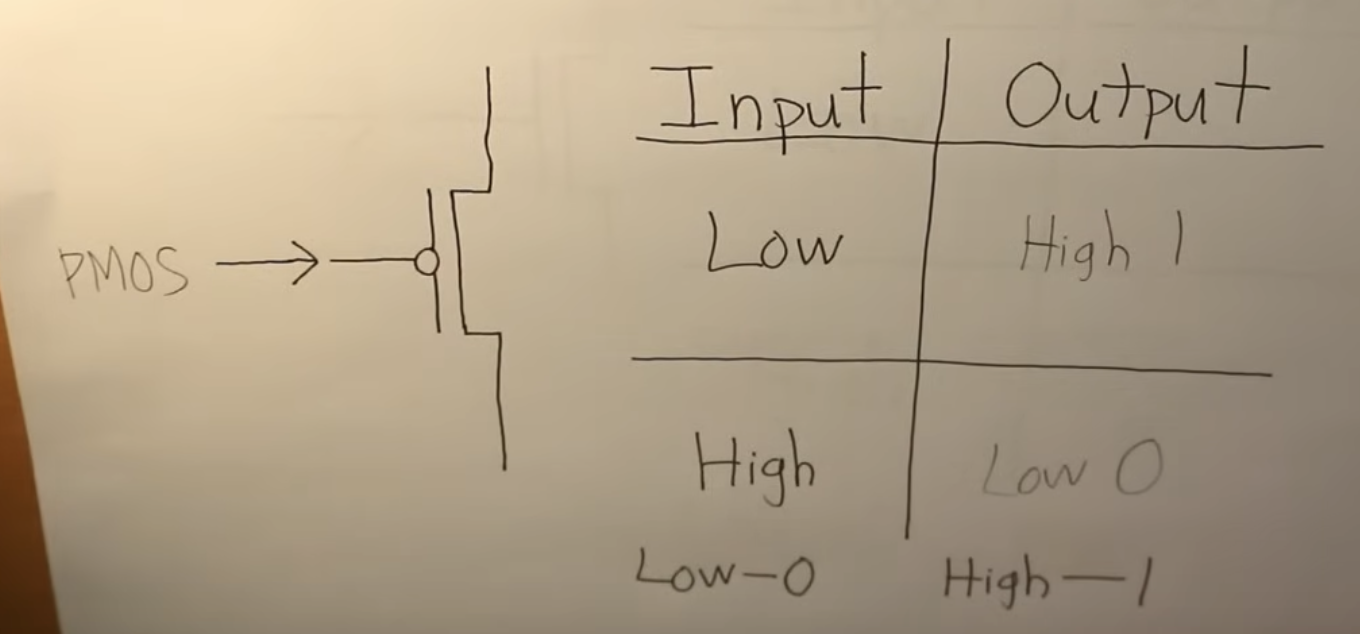 Input Output
PMOS Low High 1
High Low 0
Low-0 High-1